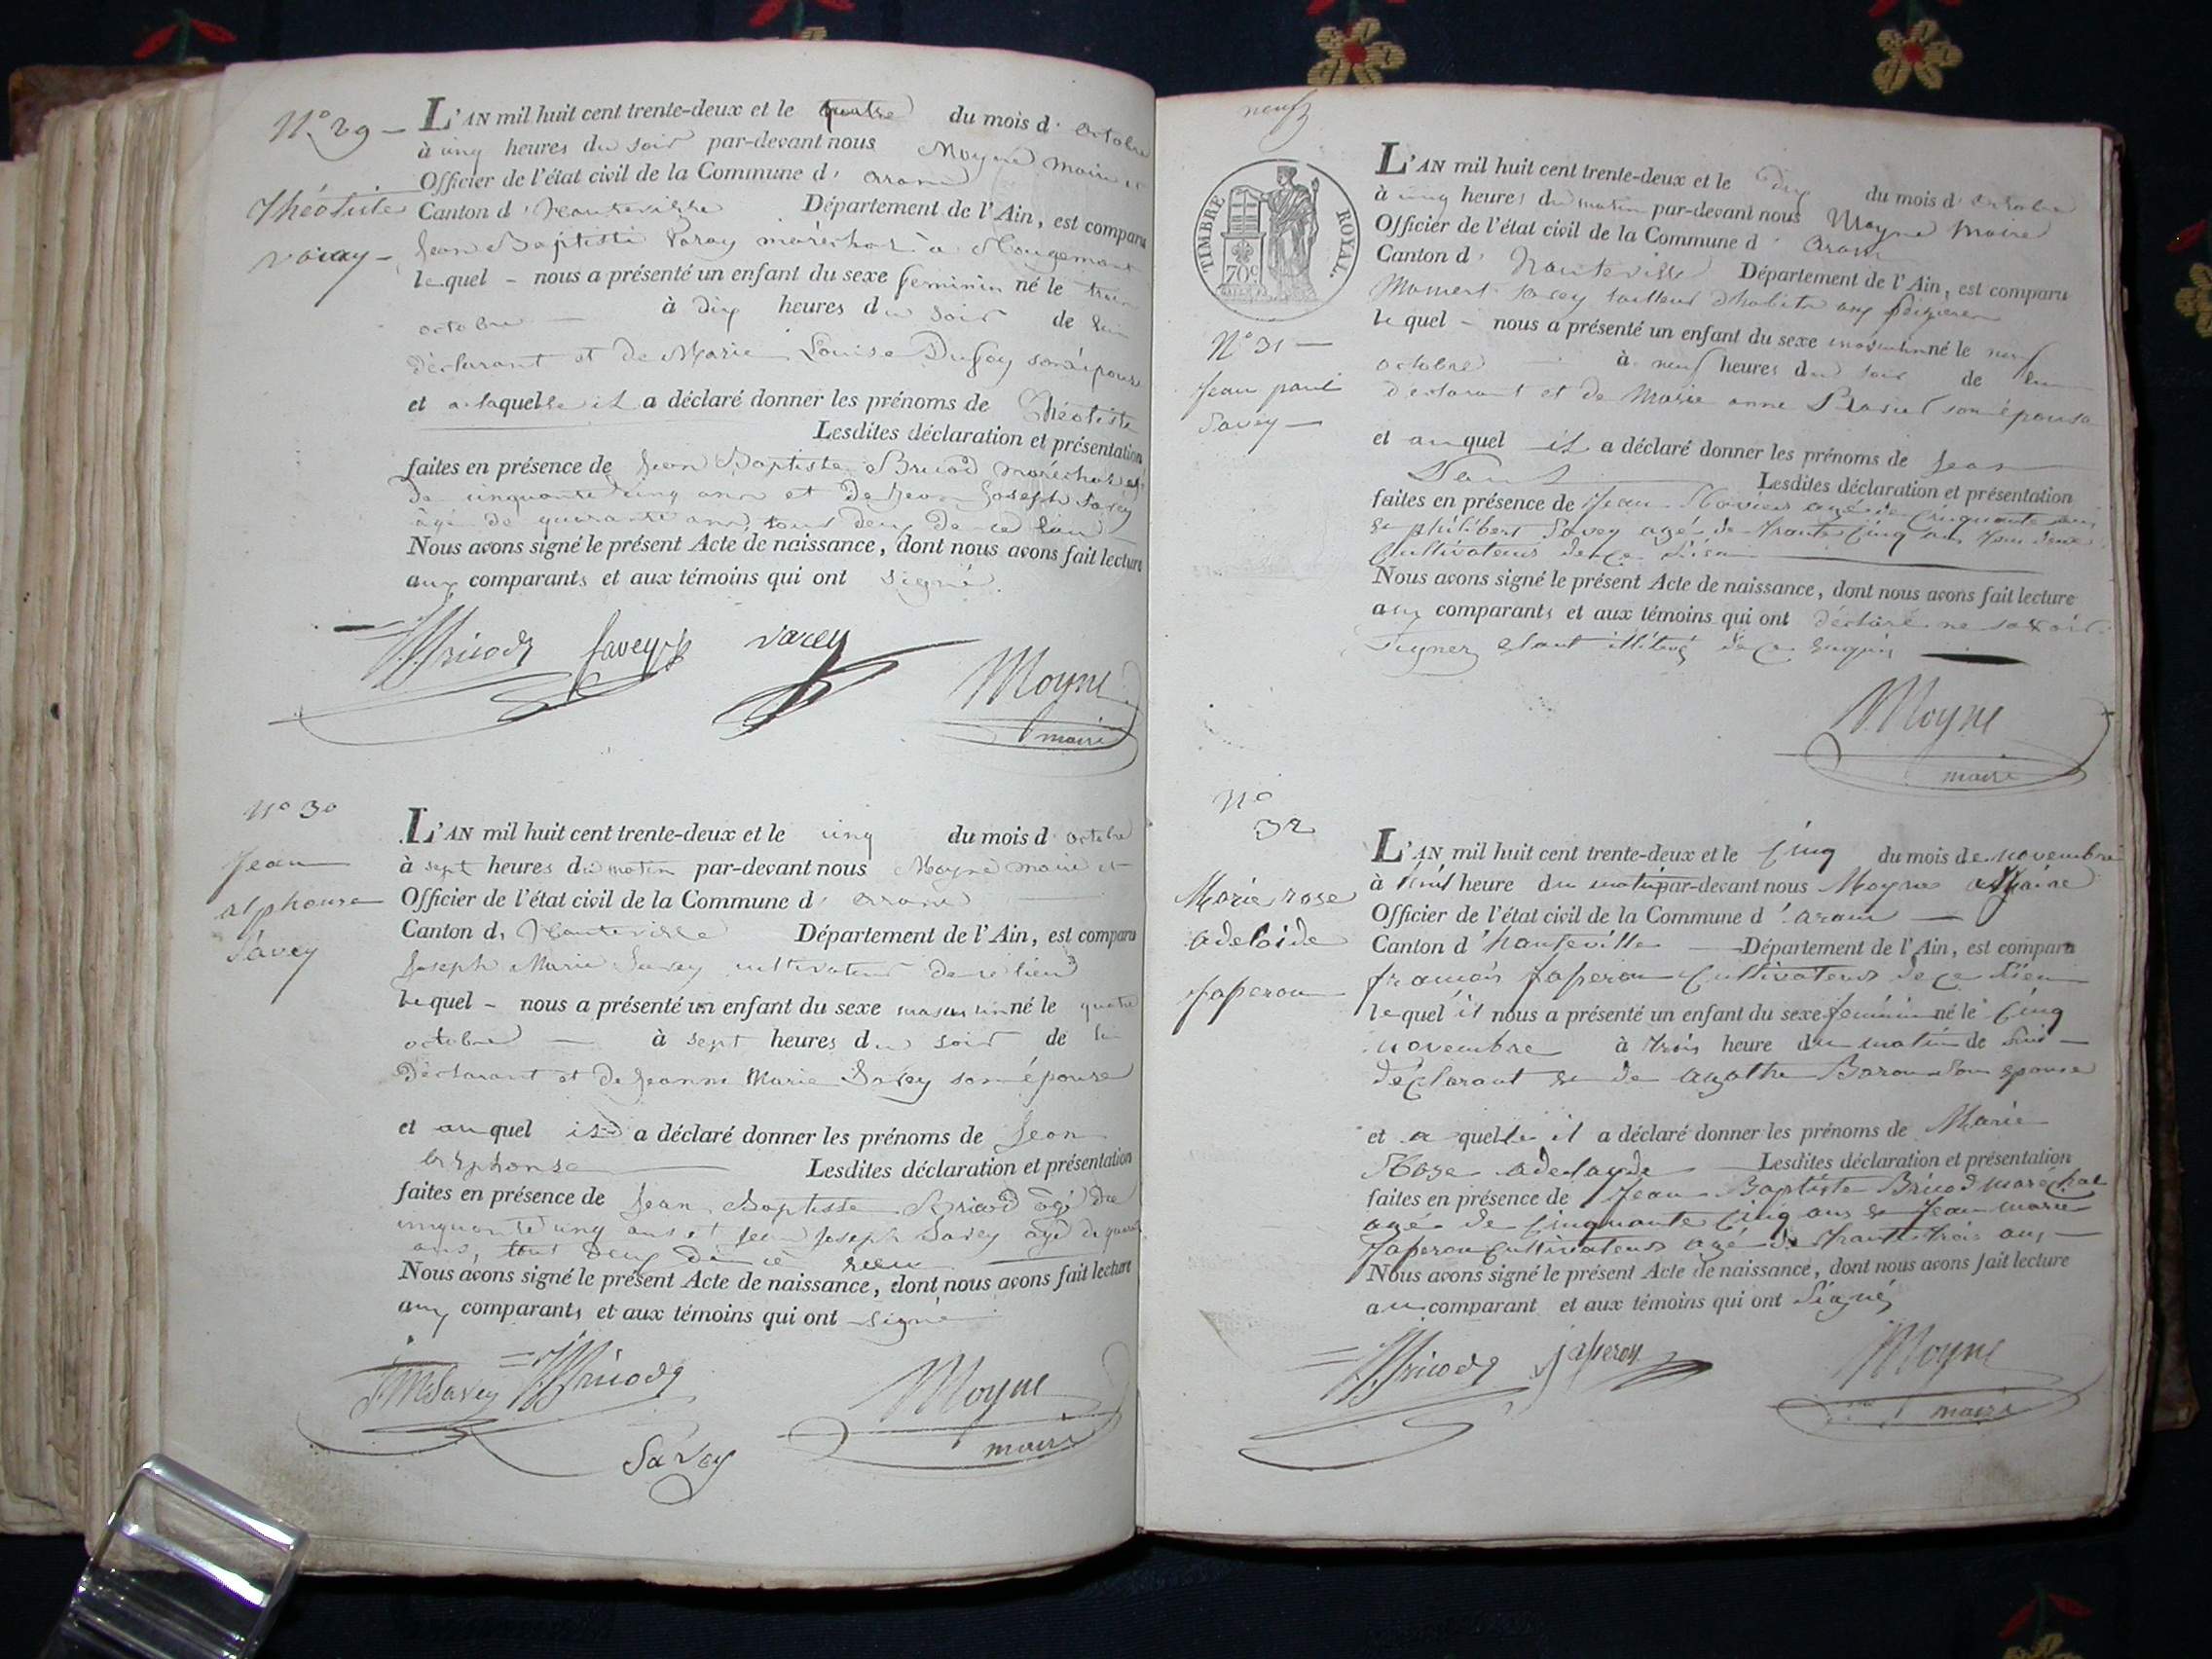 N° 29 -
Théotiste
varay -
L'AN mil huit cent trente-deux et le quatre du mois d' octobre
à cinq heures du soir par-devant nous Moyne maire et
Officier de l'état civil de la Commune d' arane
Canton d' hauteville Département de l'Ain, est comparu
Jean Baptiste Varay maréchal à Mougemont
lequel - nous a présenté un enfant du sexe feminin né le
octobre à dix heures du soir de lui
déclarant et de Marie Louise Dufay son épouse
et a laquelle il a déclaré donner les prénoms de Théotiste
Lesdites déclaration et présentation
faites en présence de Jean Baptiste Bricod maréchal agé
de cinquante cinq ans et de Jean Joseph Savey
âgé de quarante ans, tous deux de ce lieu
Nous avons signé le présent Acte de naissance, dont nous avons fait lecture
aux comparants et aux témoins qui ont signé.
JBricod Savey varey
Moyne
maire
N° 30
Jean
alphonse
Savey
L'AN mil huit cent trente-deux et le cinq du mois d' octobre
à sept heures du matin par-devant nous Moyne maire et
Officier de l'état civil de la Commune d' arane
Canton d' hauteville Département de l'Ain, est comparu
Joseph Marie Savey cultivateur de ce lieu
lequel - nous a présenté un enfant du sexe masculin né le quatre
octobre à sept heures du soir de lui
déclarant et de Jeanne Marie Savey son épouse
et auquel il a déclaré donner les prénoms de Jean
alphonse Lesdites déclaration et présentation
faites en présence de Jean Baptiste Bricod âgé de
cinquante cinq ans et Jean Joseph Savey âgé de quarante
ans, tous deux de ce lieu
Nous avons signé le présent Acte de naissance, dont nous avons fait lecture
aux comparants et aux témoins qui ont signé
JM Savey JBricod
Moyne
Savey
maire
neuf
TIMBRE ROYAL.
70c
N° 31 -
Jean paul
Savey -
L'AN mil huit cent trente-deux et le dix du mois d' octobre
à cinq heures du matin par-devant nous Moyne maire
Officier de l'état civil de la Commune d' aranc
Canton d' hauteville Département de l'Ain, est comparu
Mamert Savey tailleur d'habits aux
lequel - nous a présenté un enfant du sexe masculin né le neuf
octobre à neuf heures du soir de lui
déclarant et de Marie anne son épouse
et auquel il a déclaré donner les prénoms de Jean
Paul Lesdites déclaration et présentation
faites en présence de Jean agé de cinquante ans
et philibert Savey agé de trante cinq ans tous deux
Cultivateurs de ce Lieu
Nous avons signé le présent Acte de naissance, dont nous avons fait lecture
aux comparants et aux témoins qui ont déclaré ne savoir
Signer étant illitéré de ce enquis
Moyne
maire
N°
32
Marie rose
adelaide
Japerou
L'AN mil huit cent trente-deux et le Cinq du mois de novembre
à heure du matin par-devant nous Moyne Maire
Officier de l'état civil de la Commune d' aranc
Canton d' hauteville Département de l'Ain, est comparu
francois Japerou Cultivateur de ce Lieu
lequel il nous a présenté un enfant du sexe féminin né le Cinq
novembre à trois heure du matin de Lui
déclarant et de agathe Baron Son epouse
et a quelle il a déclaré donner les prénoms de Marie
Rose adelayde Lesdites déclaration et présentation
faites en présence de Jean Baptiste Bricod maréchal
agé de Cinquante Cinq ans et Jean marie
Japerou Cultivateur agé de trante trois ans
Nous avons signé le présent Acte de naissance, dont nous avons fait lecture
au comparant et aux témoins qui ont Signé
JBricod Japerou
Moyne
maire